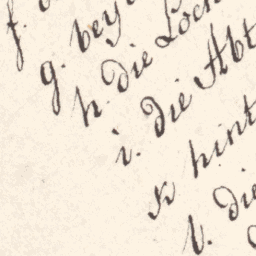 f.
g. bey
h. die Loch
i. die Abt
k hint
l. die